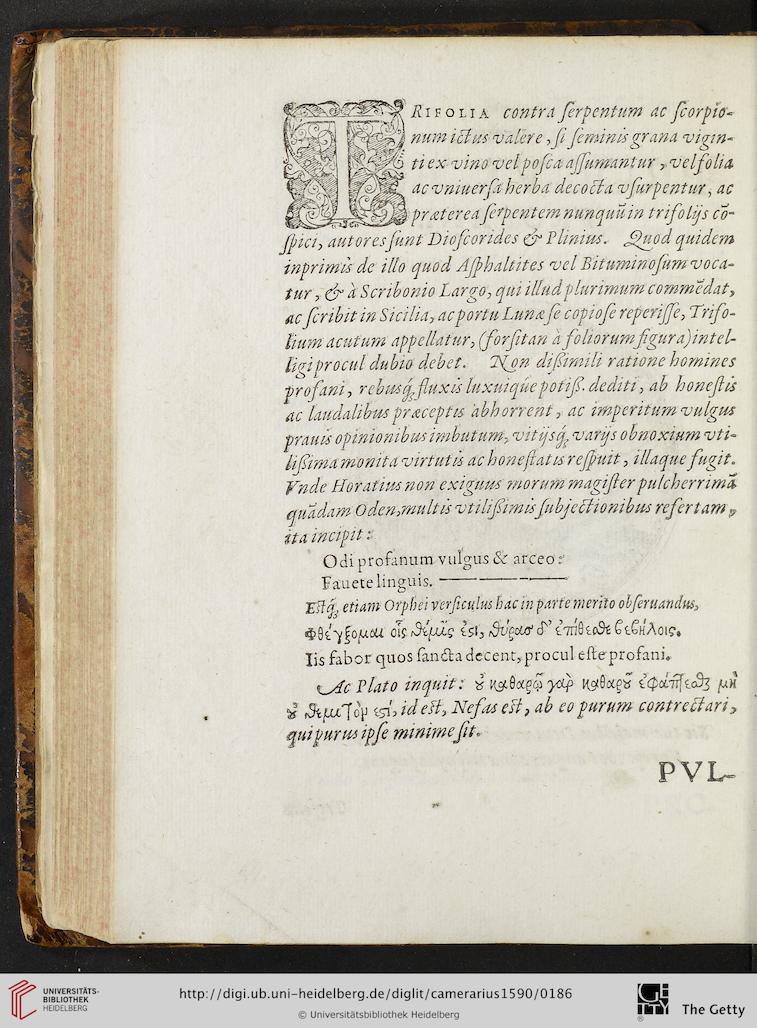 TRIFOLIA contra ſerpentum ac ſcorpio-
num ictus valere, ſi ſeminis grana vigin-
ti ex vino vel poſca aſſumantur, vel folia
ac vniuerſa herba decocta vſurpentur, ac
præterea ſerpentem nunquũ in trifolijs cõ-
ſpici, autores ſunt Dioſcorides & Plinius. Quod quidem
inprimis de illo quod Aſphaltites vel Bituminoſum voca-
tur, & à Scribonio Largo, qui illud plurimum commẽdat,
ac ſcribit in Sicilia, ac portu Lunæ ſe copioſe reperiſſe, Trifo-
lium acutum appellatur, (forſitan à foliorum figura) intel-
ligi procul dubio debet. Non diſsimili ratione homines
profani, rebusq́; fluxis luxuique potiſs. dediti, ab honeſtis
ac laudalibus præceptis abhorrent, ac imperitum vulgus
prauis opinionibus imbutum, vitijsq́; varijs obnoxium vti-
liſsima monita virtutis ac honeſtatis reſpuit, illaque fugit.
Vnde Horatius non exiguus morum magiſter pulcherrimã
quãdam Oden, multis vtiliſsimis ſubjectionibus refertam,
ita incipit:
Odi profanum vulgus & arceo:
Fauete linguis.
Eſtq́; etiam Orphei verſiculus hac in parte merito obſeruandus,
Φθέγξομαι οἷς θέμις ἐςὶ, θύρας δ' ἐπίθεσθε βεβήλοις.
Iis fabor quos ſancta decent, procul eſte profani.
Ac Plato inquit: ȣ̓ καθαρῷ γὰρ καθαρȣ͂ ἐφάπτεσθαι μὴ
ȣ̓ θεμιτὸν ἐςί, id eſt, Nefas eſt, ab eo purum contrectari,
qui purus ipſe minime ſit.
PVL-
UNIVERSITÄTS-
BIBLIOTHEK
HEIDELBERG
http://digi.ub.uni-heidelberg.de/diglit/camerarius1590/0186
© Universitätsbibliothek Heidelberg
The Getty